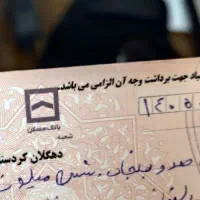 جهت برداشت وجه آن الزامی می باشد.
۱۴۰۵
بانک مسکن
شعبه
دهگلان کردستا
صد و پنجاه و شش میلیون